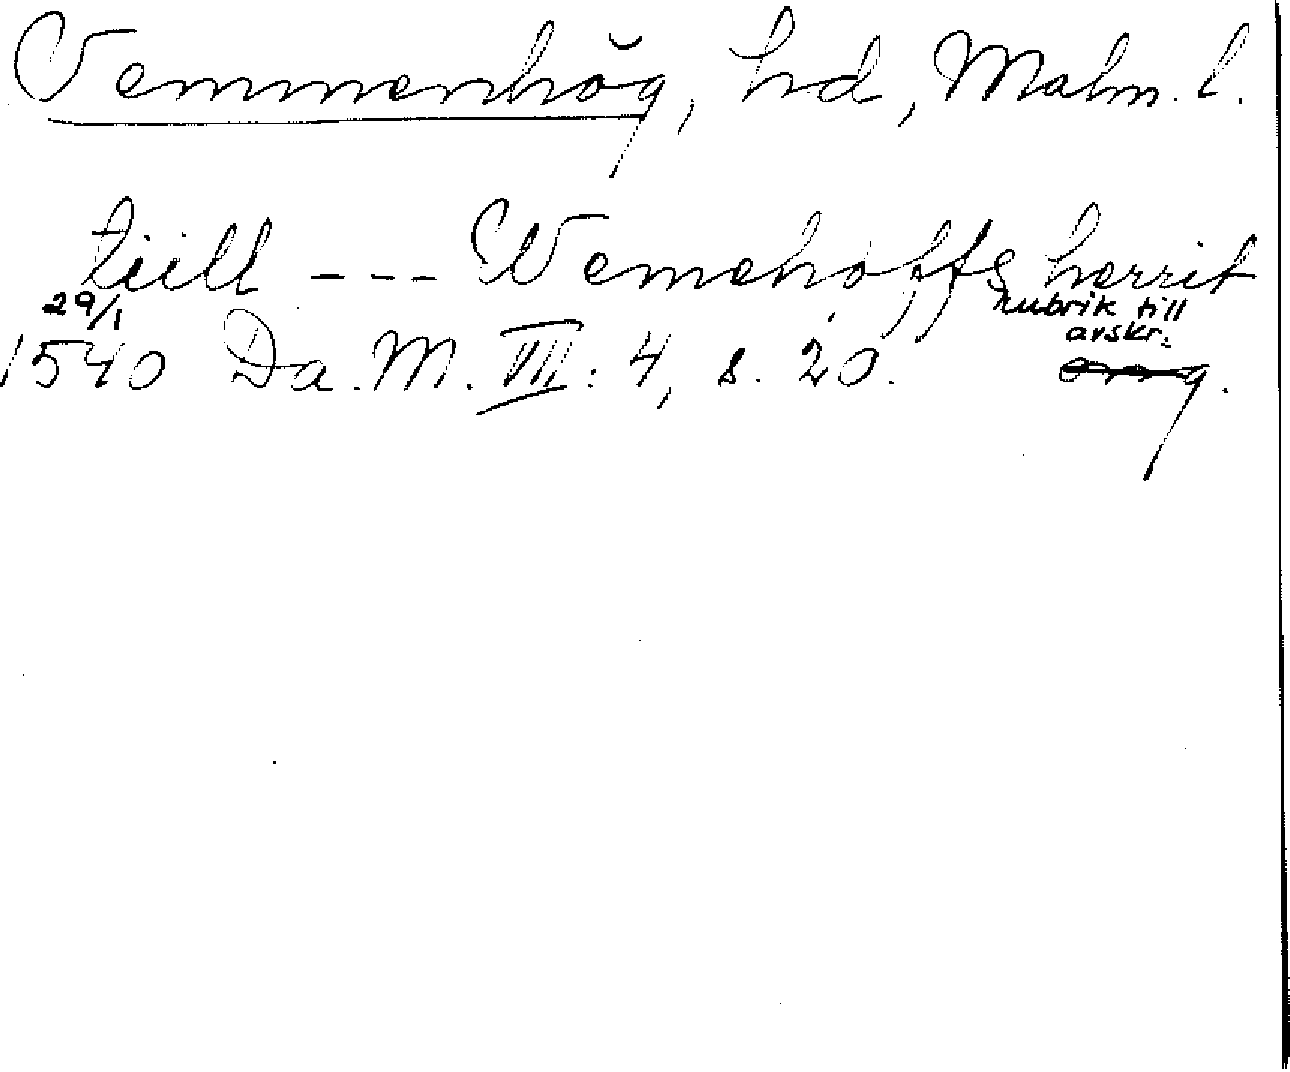 Vemmenhög, hd, Malm. l.
tiill --- Wemehøffs herrit
29/1 rubrik till
avskr.
1540 Da. M. III: 4, s. 20.